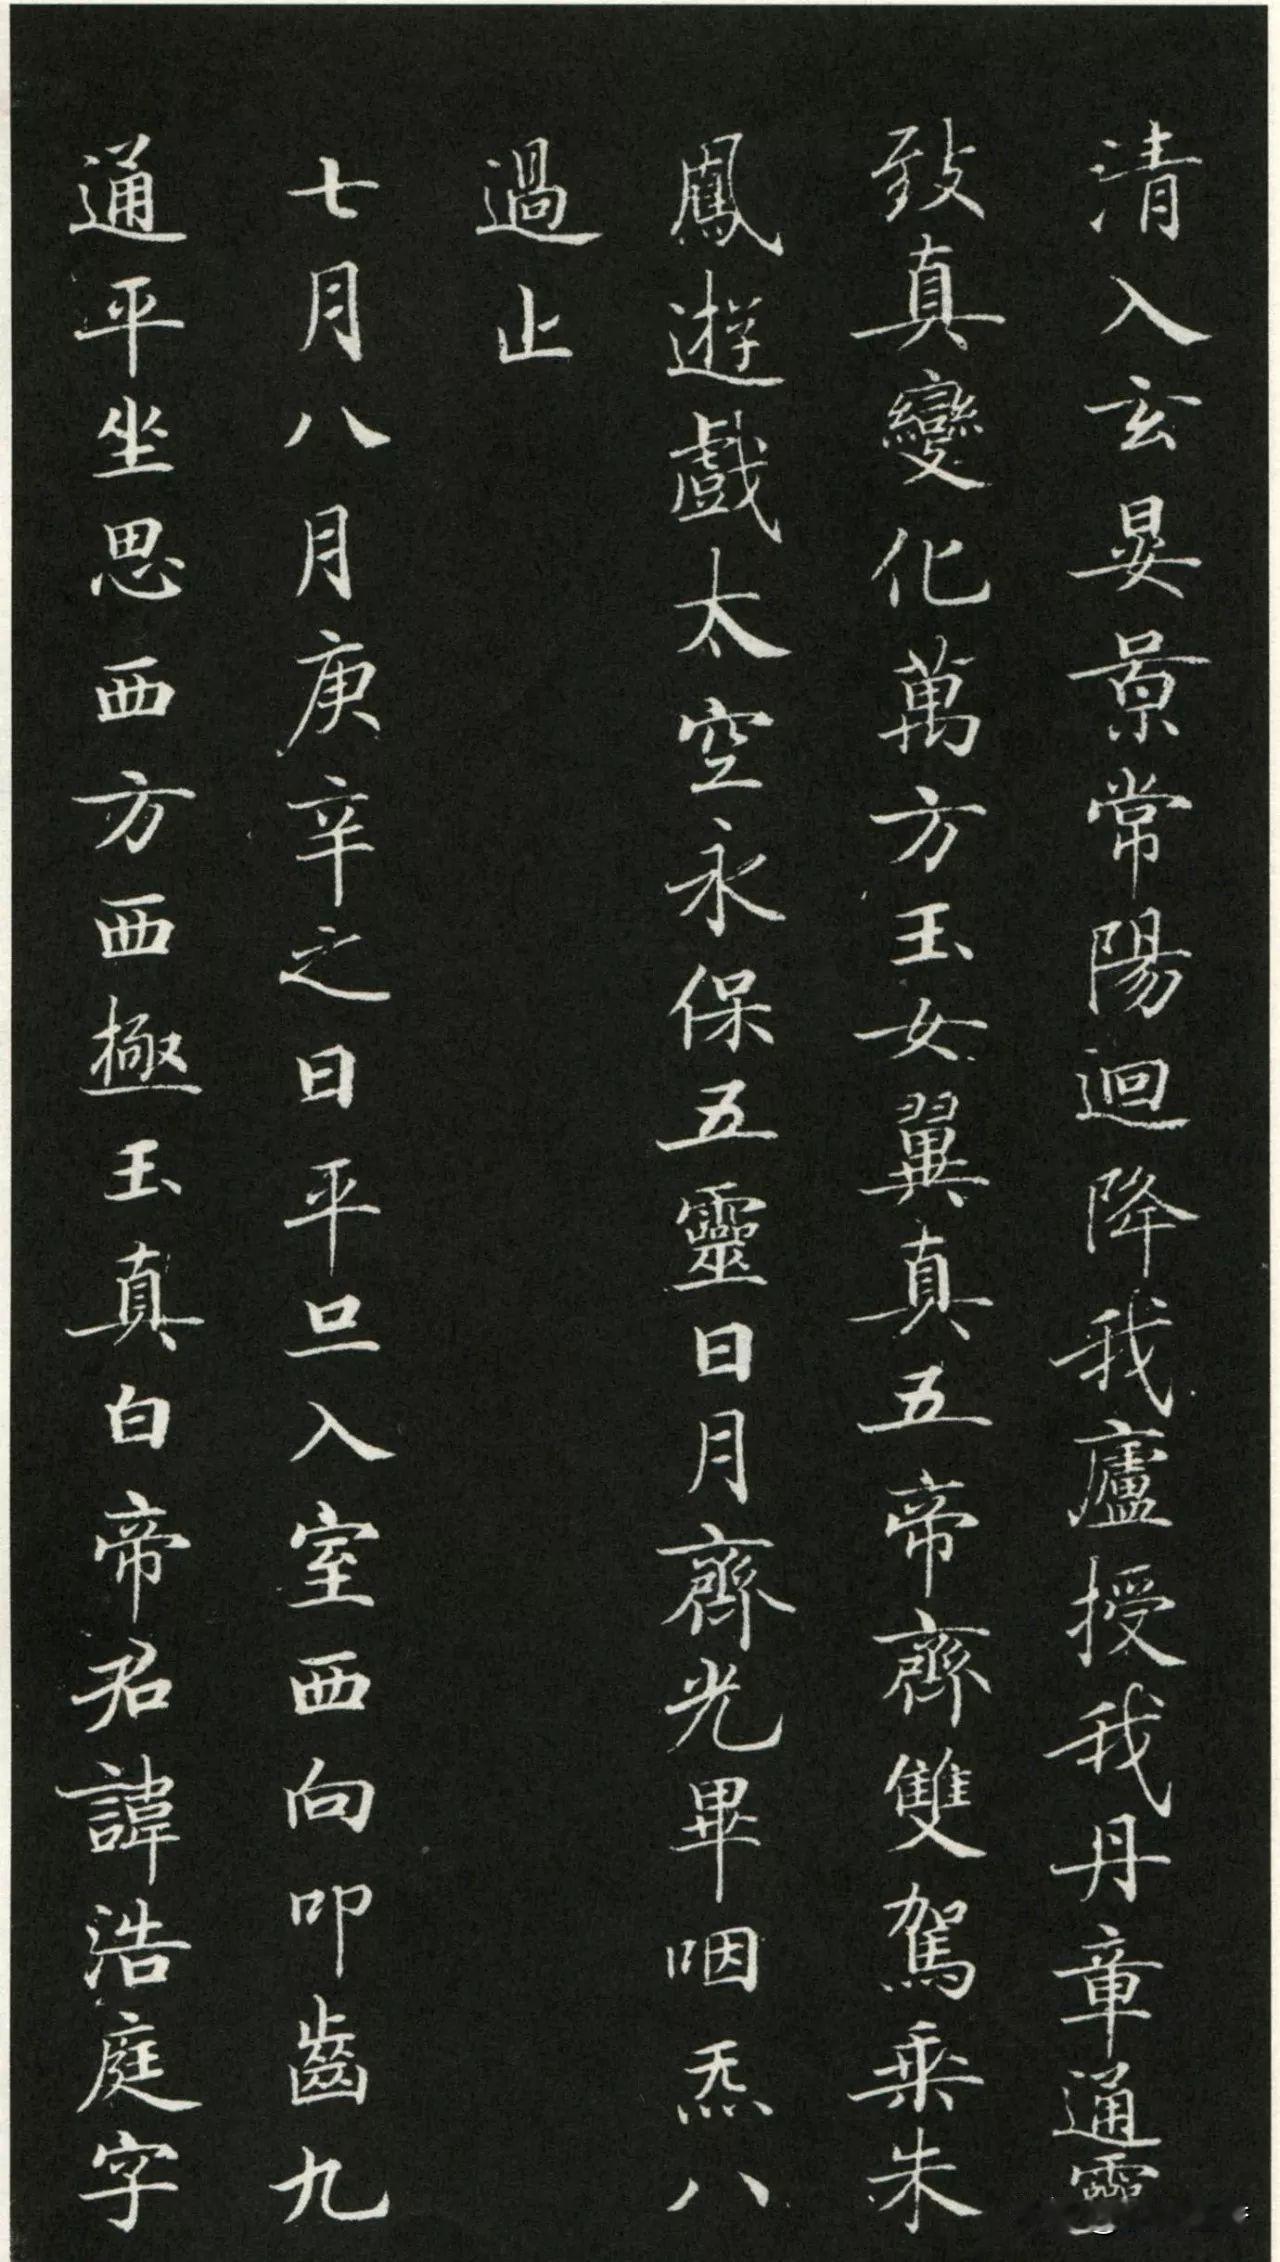 清入玄晏景常陽迴降我廬授我丹章通靈
致真變化萬方玉女翼真五帝齊雙駕乗朱
鳳遊戲太空永保五靈日月齊光畢咽炁八
過止
七月八月庚辛之日平旦入室西向叩齒九
通平坐思西方西極玉真白帝君諱浩庭字